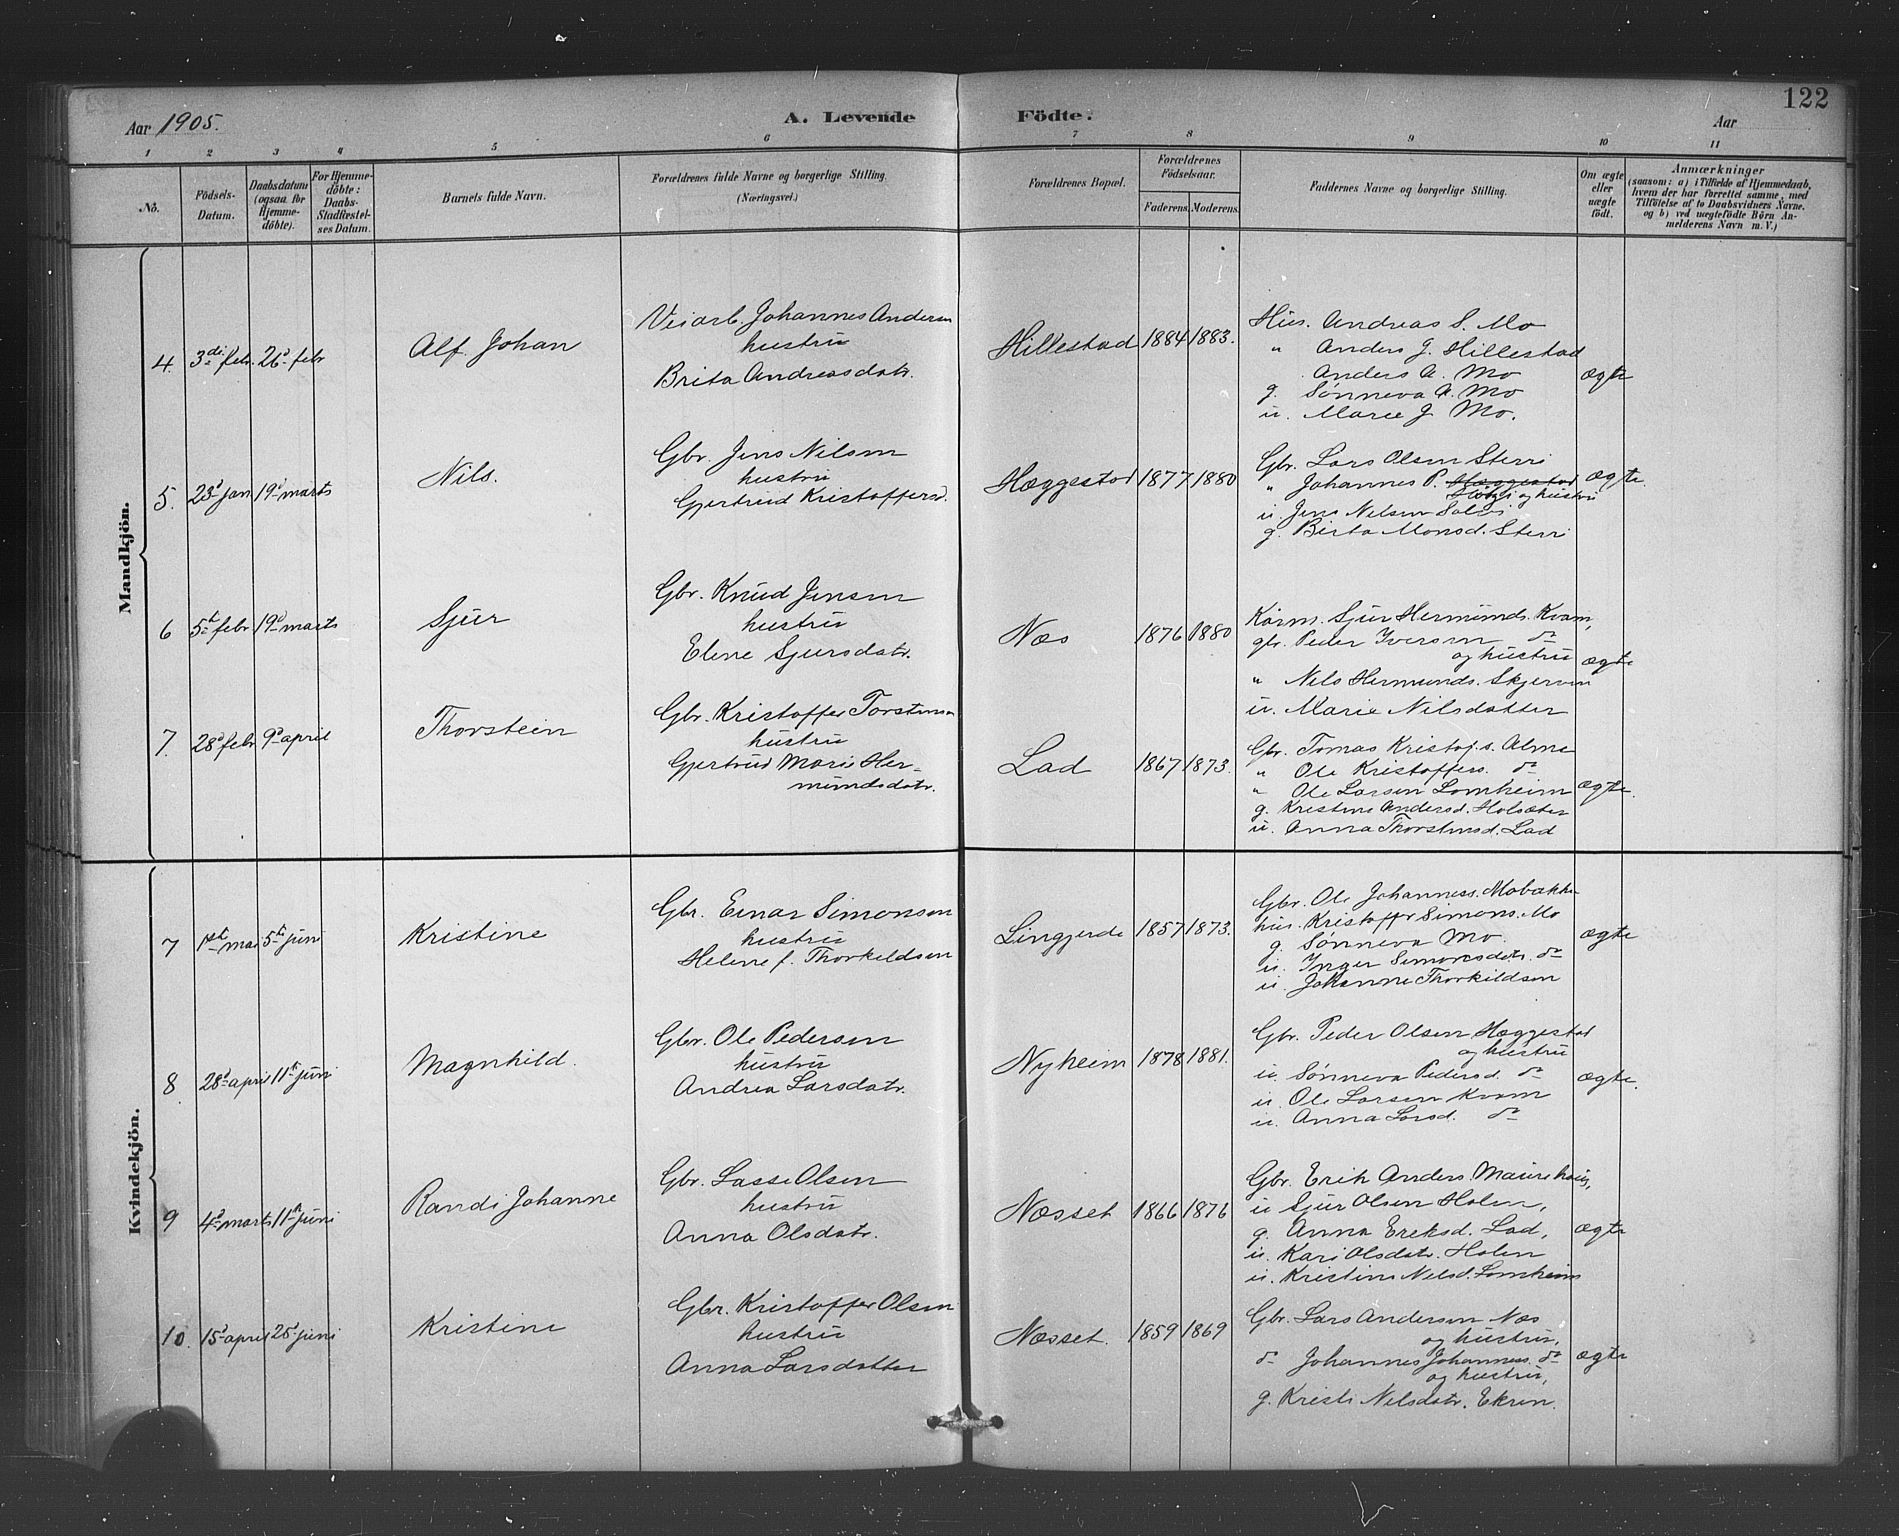 122
Aar 1905.
A. Levende Födte.
Aar
1 2 3 4 5 6 7 8 9 10 11
No.
Födsels-Datum.
Daabsdatum (ogsaa for Hjemme-döbte).
For Hjemme-döbte: Daabs-Stadfæstel-ses Datum.
Barnets fulde Navn.
Forældrenes fulde Navne og borgerlige Stilling. (Næringsvei.)
Forældrenes Bopæl.
Forældrenes Födselsaar.
Faderens. Moderens.
Faddernes Navne og borgerlige Stilling.
Om ægte eller uægte födt.
Anmærkninger
(saasom: a) i Tilfælde af Hjemmedaab, hvem der har forrettet samme, med Tilföielse af to Daabsvidners Navne. og b) ved uægtefödte Börn An-melderens Navn m. V.)
Mandkjön.
4. 3die febr. 26d febr
Alf Johan
Veiarb. Johannes Andersen
hustru
Brita Andreasdatr.
Hillestad 1884 1883.
Hus. Andreas S. Mo
" Anders J. Hillestad
Anders A. Mo
g. Sønneva A. Mo
u. Marie J. Mo.
ægte
5. 23d jan 19d marts
Nils.
Gbr. Jens Nilsen
hustru
Gjertrud Kristoffersd.
Hæggestad 1877 1880
Gbr. Lars Olsen Sterri
" Johannes P. Hæggestad
og hustru
u. Jens Nelsen
g. Brita Monsd. Sterri
ægte.
6 5te febr 19d marts
Sjur
Gbr. Knud Jensen
hustru
Elene Sjursdatr.
Næs 1876 1880
Kårm. Sjur Hermunds. Kvam,
gbr. Peder Iversen do
og hustru
" Nils Hermunds. Skjerven
u. Marie Nilsdatter
ægte
7. 28d febr 9d april
Thorstein
Gbr. Kristoffer Torstensen
hustru
Gjertrud Marie Her-
mundsdatr.
Lad 1867 1873.
Gbr. Tomas Kristof.s. Alme
" Ole Kristoffers. do
" Ole Larsen Lomheim
g. Kristine Andersd. Holsæter
u. Anna Thorstensd. Lad
ægte.
Kvindekjön.
7 1ste mai 5te juni
Kristine
Gbr. Einar Simonsen
hustru
Helene f. Thorkildsen
Lingjerde 1857 1873.
Gbr. Ole Johanness. Mobakke
hus. Kristoffer Simons. Mo
g. Sønneva Mo.
u. Inger Simonsdatr. do
u. Johanne Thorkildsen
ægte
8 28d april 11te juni
Magnhild.
Gbr. Ole Pedersen
hustru
Andrea Larsdatr.
Nyheim 1878 1881.
Gbr. Peder Olsen Hæggestad
og hustru
u. Sønneva Pedersd. do
u. Ole Larsen Kvam
u. Anna Larsd. do
ægte.
9 4d marts 11te juni
Randi Johanne
Gbr. Lasse Olsen
hustru
Anna Olsdatr.
Næsset 1866 1876
Gbr. Erik Anders. Maurehaug,
u Sjur Olsen Holen,
g. Anna Ereksd. Lad,
u. Kari Olsdatr. Holen
u. Kristine Nelsd. Lomheim
ægte
10. 15d april 25d juni
Kristine
Gbr. Kristoffer Olsen
hustru
Anna Larsdatter
Næsset. 1859 1869
Gbr. Lars Andersen Næs
og hustru,
do Johannes Johanness. do
og hustru,
g. Kristi Nilsdatr. Ekren.
ægte